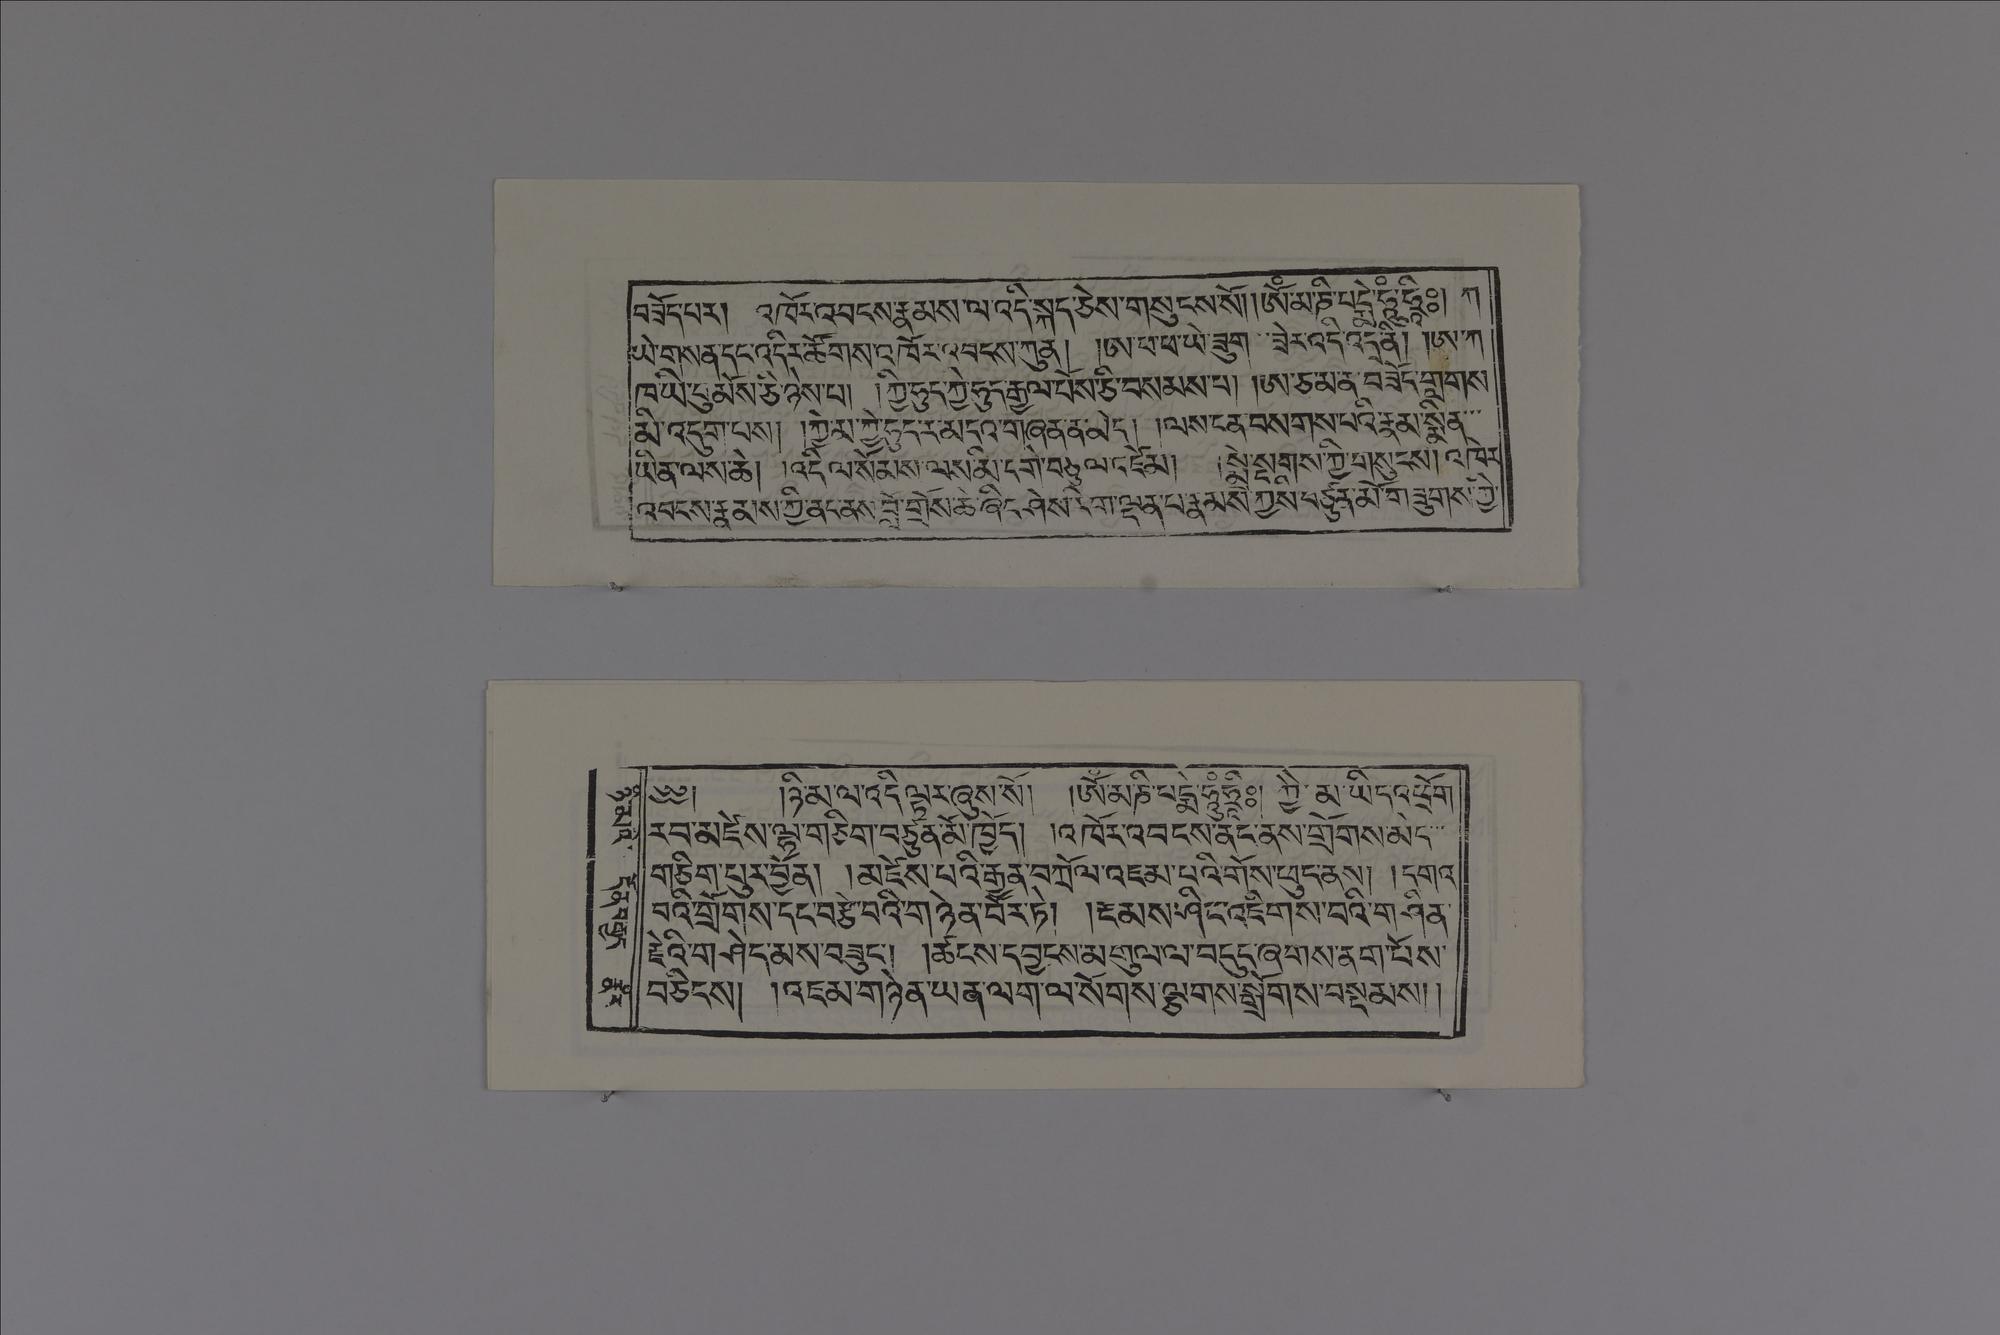 བཟོད་པར།  འཁོར་འབངས་རྣམས་ལ་འདི་སྐད་ཅེས་གསུངས་སོ། །ཨོཾ་མ་ཎི་པདྨེ་ཧཱུྃ་ཧྲཱིཿ ཀ
ཡེ་གསན་དང་འདིར་ཚོགས་འཁོར་འབངས་ཀུན། །ཨ་ཕ་ཕ་ཡེ་ཟུག་ཟེར་འདི་འདྲ་ནི། །ཨ་ཀ
ཁ་ཡི་བུ་མོས་ཅི་ཉེས་པ། །ཀྱི་ཧུད་ཀྱེ་ཧུད་རྒྱལ་པོས་ཅི་བསམས་པ། །ཨ་ཅམ་ན་བཟོད་གླགས
མི་འདུག་པས། །ཀྱེ་མ་ཀྱེ་ཧུད་ར་མདའ་གཞན་ན་མེད། །ལས་ངན་བསགས་པའི་རྣམ་སྨིན
ཡིན་ལས་ཆེ། །འདི་ལ་སོམས་ལས་མི་དགེ་བཅུ་ལ་འཛེམ། །སྨྲེ་སྔགས་ཀྱི་གསུངས། འཁོར
འབངས་རྣམས་ཀྱི་ནང་ནས་བློ་གྲོས་ཆེ་ཞིང་ཤེས་རབ་ལྡན་པ་རྣམས་ཀྱིས་བཙུན་མོ་གཟུགས་ཀྱི
༄༅།  །ཉི་མ་ལ་འདི་ལྟར་ཞུས་སོ། །ཨོཾ་མ་ཎི་པདྨེ་ཧཱུྃ་ཧྲཱིཿ ཀྱེ་མ་ཡིད་འཕྲོག
རབ་མཛེས་ལྟ་གཅིག་བཙུན་མོ་ཁྱོད། །འཁོར་འབངས་ནང་ནས་གྲོགས་མེད
གཅིག་པུར་བྱོན། །མཛེས་པའི་རྒྱན་བཀྲོལ་འཇམ་པའི་གོས་ཕུད་ནས། །དགའ
བའི་གྲོགས་དང་བརྩེ་བའི་གཉེན་བོར་ཏེ། །ངམས་ཤིང་འཇིགས་པའི་གཤིན
རྗེའི་གཤེད་མས་བཟུང་། །ཚངས་དབྱངས་མགུལ་ལ་བདུད་ཞགས་ནག་པོས་
བཅིངས། །འཇམ་གཉེན་ཡན་ལག་ལ་སོགས་ལྕགས་སྒྲོག་བསྡམས། །